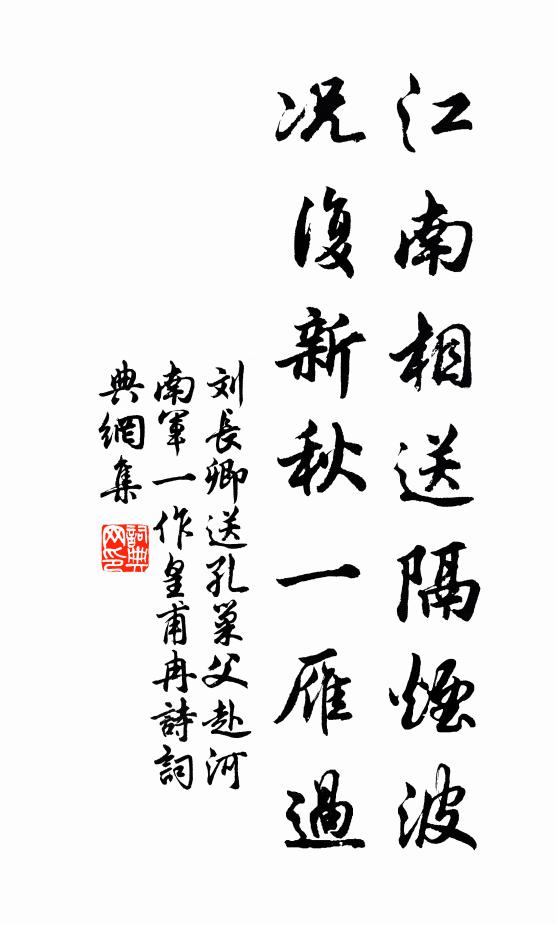 江南相送隔煙波
况復新秋一雁過
刘長卿送孔巢父赴河
南軍一作皇甫冉詩詞
典網集
詞典
网印